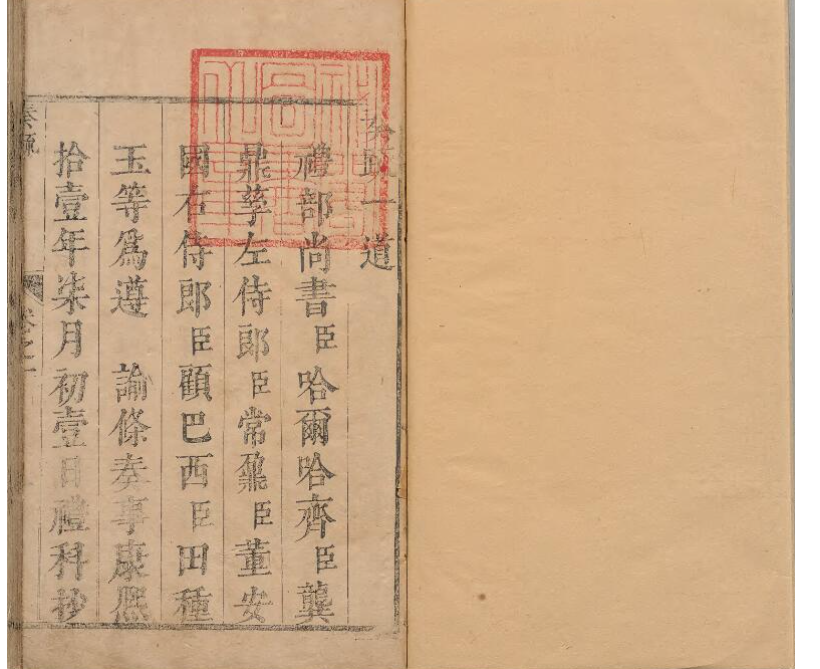 奏疏一道
禮部尚書臣哈爾哈齊臣龔
鼎孳左侍郎臣常鼐臣董安
國右侍郎臣顧巴西臣田種
玉等爲遵 諭條奏事康熙
拾壹年柒月初壹日禮科抄
奏疏
卷之一